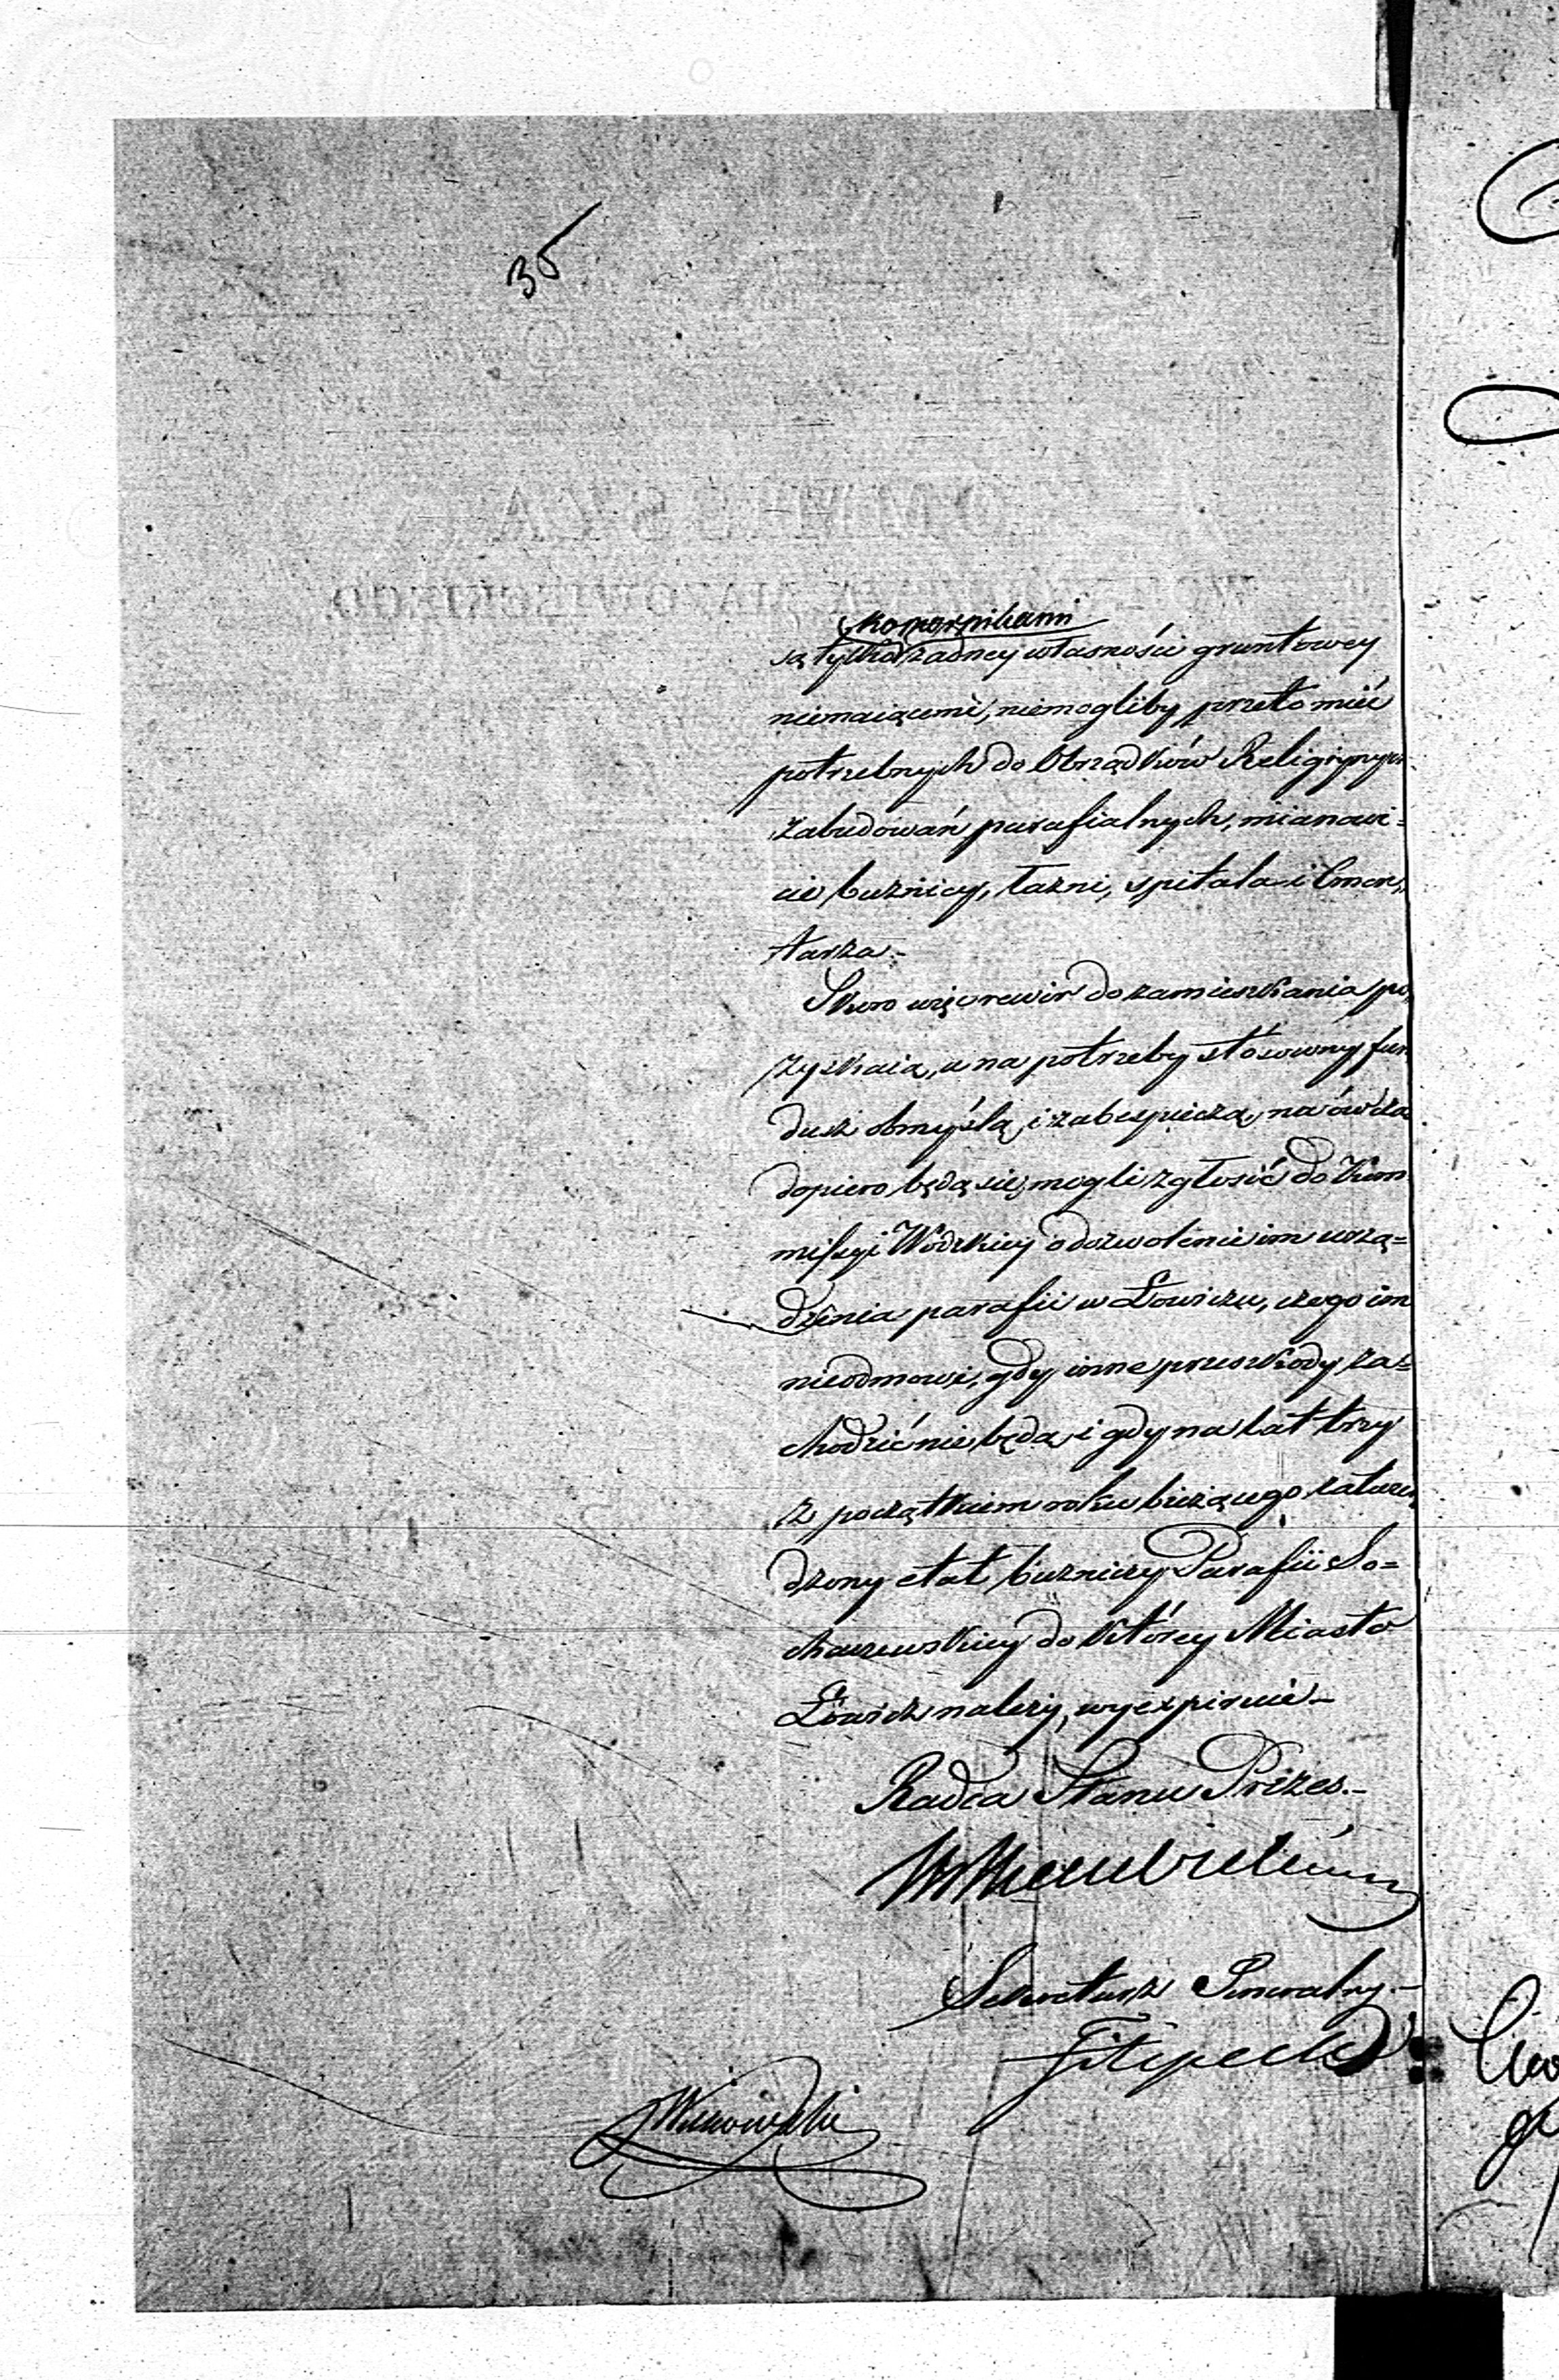 35
komornikami
są tylko żadney własności gruntowey
niemaiącemi, niemogliby przeto mieć
potrzebnych do Obrządków Religiynych
zabudowań parafialnych, mianowi=
cie bużnicy, łaźni, szpitala i Cmen=
tarza.-
Skoro więc rewir do zamieszkania po
zyskaią, a na potrzeby stósowny fun
dusz obmyślą, i zabespieczą, na ówcza
dopiero będą się mogli zgłosić do Kom
missyi Wódzkiey o dozwolenie im urzą=
dzenia parafii w Łowiczu, czego im
nieodmowi, gdy inne przeszkody za=
chodzić nie będą, i gdy na lat trzy
z początkiem roku bieżącego zatwier
dzony etat bużniczy Parafii So=
chaczewskiey do którey Miasto
Łowicz należy, wyexpiruie.-
Radca Stanu Prezes.-
Sekretarz Jeneralny.-
Filipecki